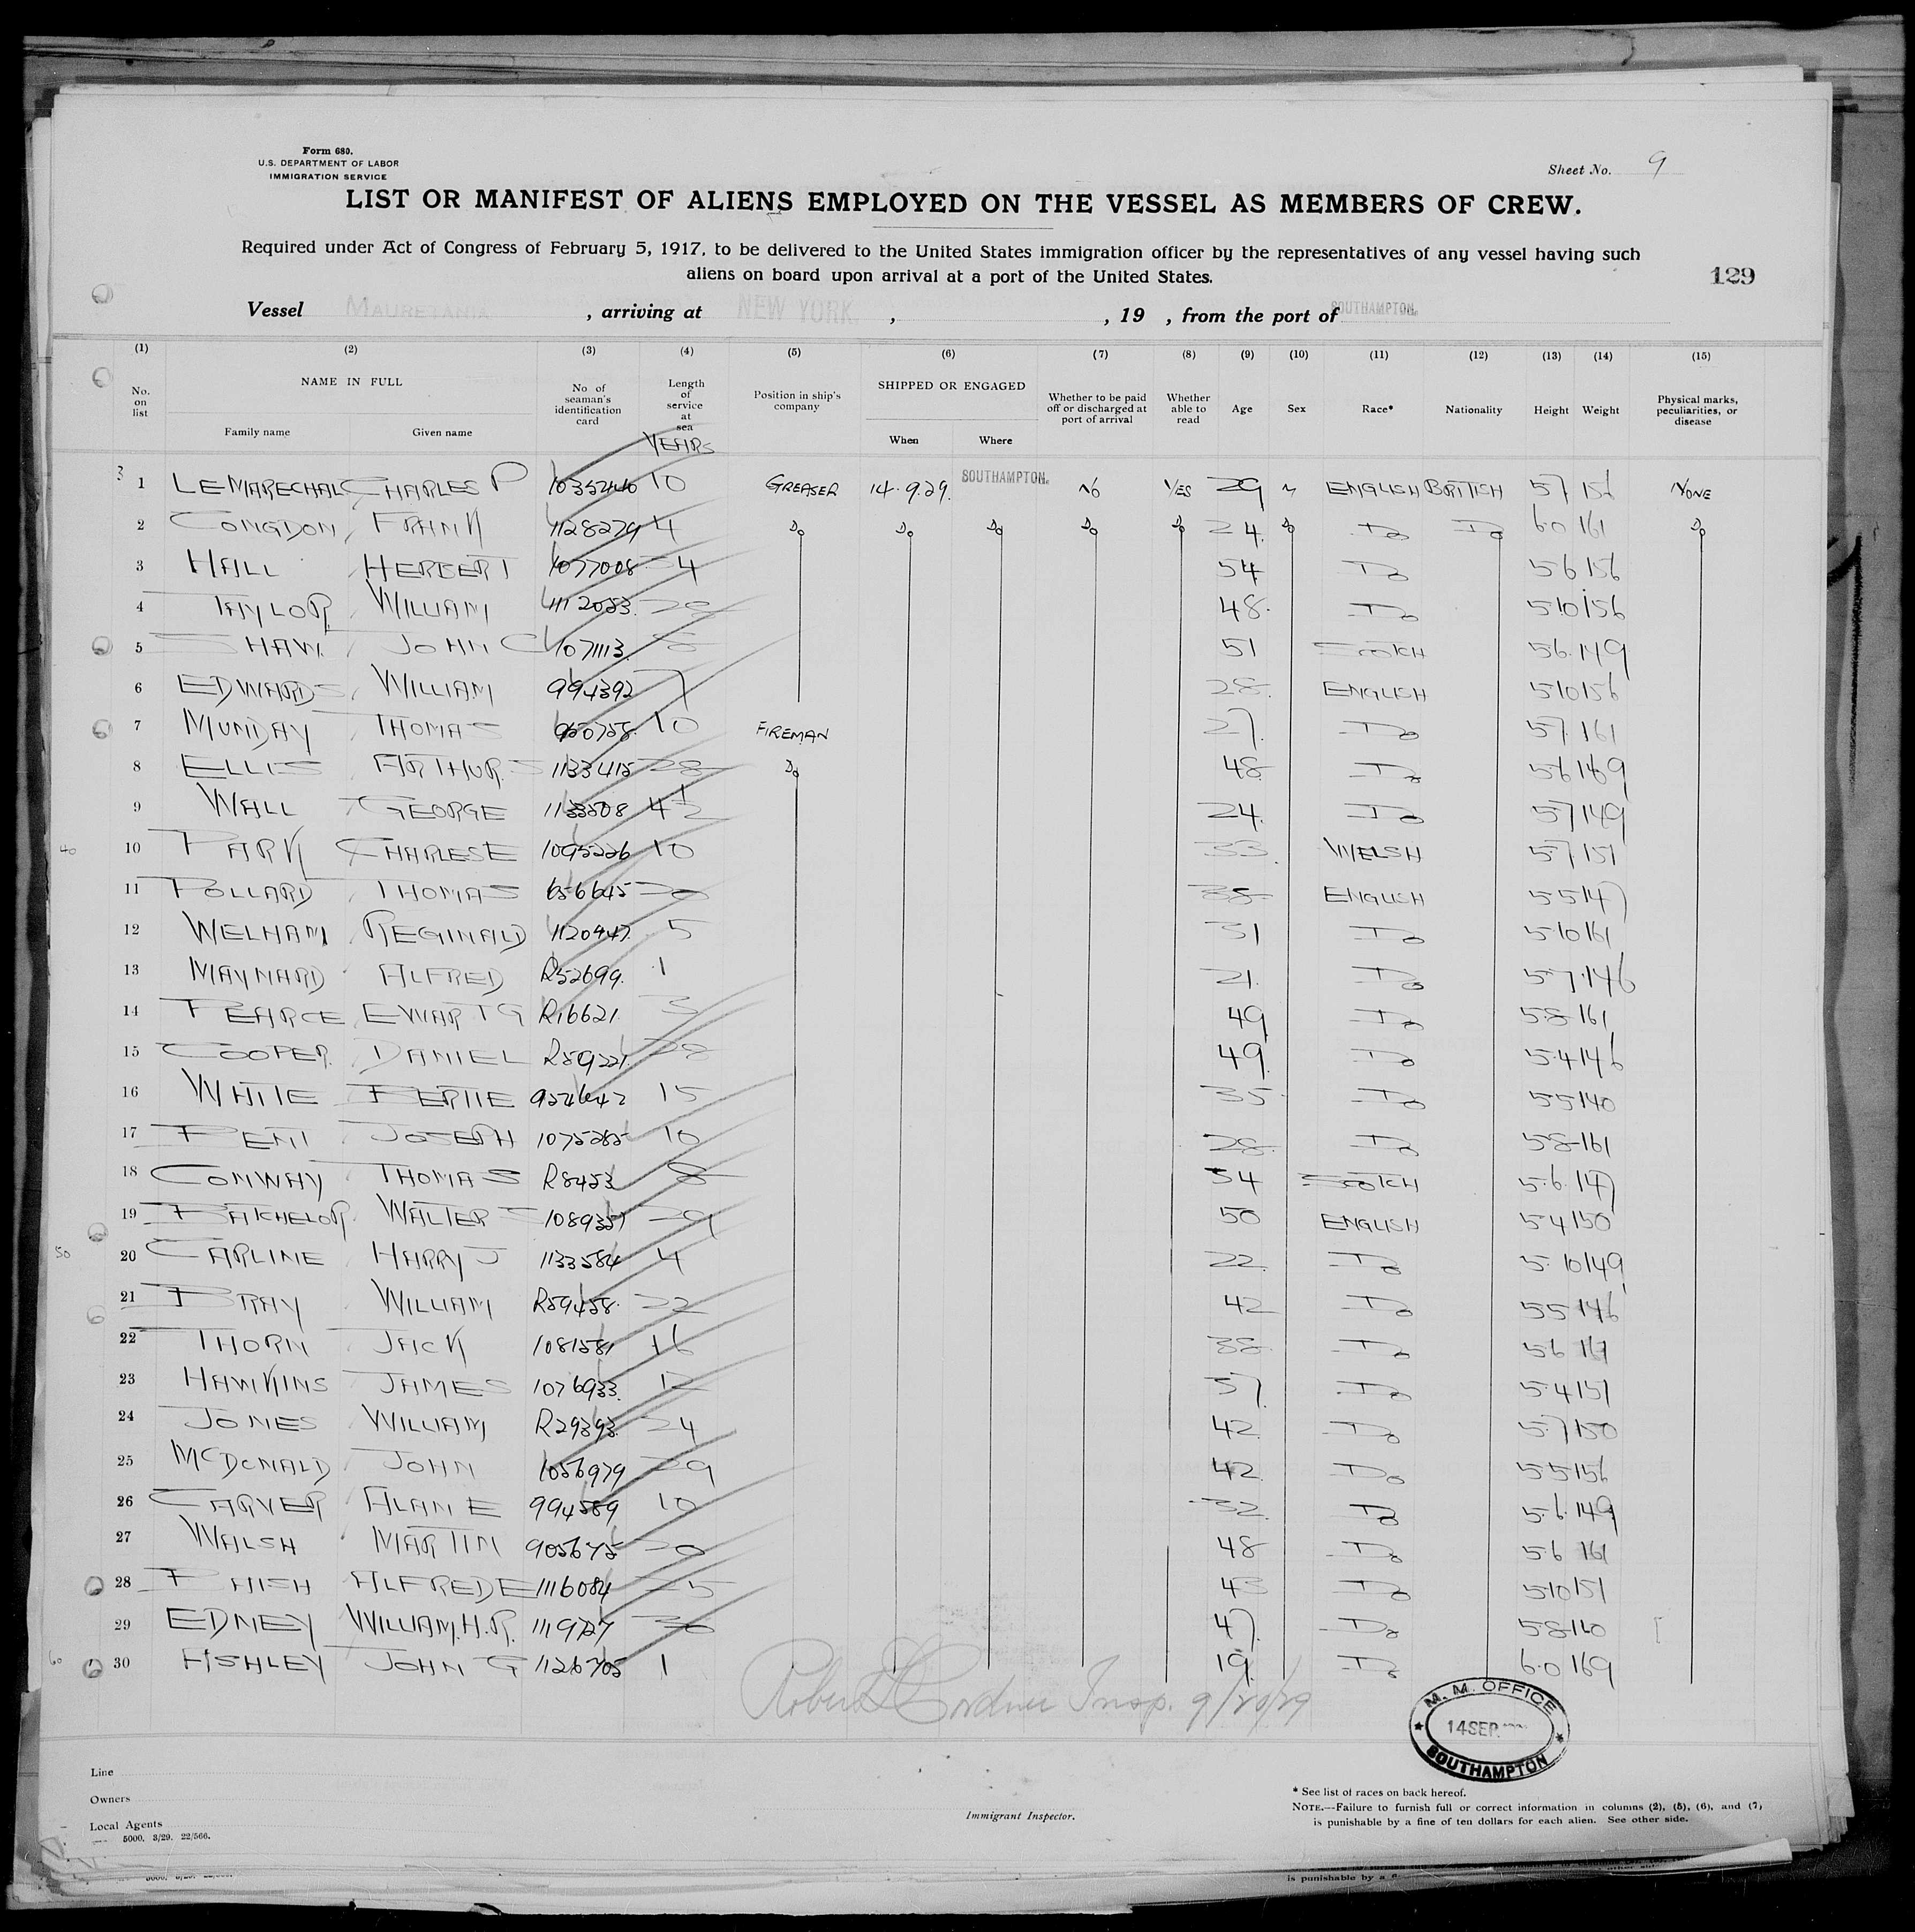 Form 680.
U.S. DEPARTMENT OF LABOR
IMMIGRATION SERVICE
Sheet No. 9
LIST OR MANIFEST OF ALIENS EMPLOYED ON THE VESSEL AS MEMBERS OF CREW.
Required under Act of Congress of February 5, 1917, to be delivered to the United States immigration officer by the representatives of any vessel having such
aliens on board upon arrival at a port of the United States.
129
Vessel MAURETANIA, arriving at NEW YORK, , 19 , from the port of SOUTHAMPTON.
(1) (2) (3) (4) (5) (6) (7) (8) (9) (10) (11) (12) (13) (14) (15)
No. on list NAME IN FULL Family name Given name No of seaman's identification card Length of service at sea YEARS Position in ship's company SHIPPED OR ENGAGED When Where Whether to be paid off or discharged at port of arrival Whether able to read Age Sex Race* Nationality Height Weight Physical marks, peculiarities, or disease
3 1 LEMARECHAL CHARLES P 1035446 10 GREASER 14.9.29. SOUTHAMPTON. NO YES 29 M ENGLISH BRITISH 57 156 NONE
2 CONGDON FRANK 1128279 4 Do Do Do Do Do 24 Do Do Do 60 161 Do
3 HALL HERBERT 1077008 54 Do 56 156
4 TAYLOR WILLIAM 1112053 28 48 Do 510 156
5 SHAW JOHN C 1071113 8 51 SCOTCH 56 149
6 EDWARDS WILLIAM 994392 7 28 ENGLISH 510 156
7 MUNDAY THOMAS 950758 10 FIREMAN 27 Do 57 161
8 ELLIS ARTHUR S 1133415 28 Do 48 Do 56 169
9 WALL GEORGE 1133508 4½ 24 Do 57 149
40 10 PARK CHARLES E 1095226 10 33 WELSH 57 151
11 POLLARD THOMAS 656645 20 38 ENGLISH 55 147
12 WELHAM REGINALD 1120947 5 31 Do 510 161
13 MAYNARD ALFRED R52699 1 21 Do 57 146
14 PEARCE EWART G R16621 3 49 Do 58 161
15 COOPER DANIEL R59221 28 49 Do 54 146
16 WHITE BERTIE 954642 15 35 Do 55 140
17 BENT JOSEPH 1075285 10 28 Do 58 161
18 CONWAY THOMAS R8453 8 54 SCOTCH 5.6 147
19 BATCHELOR WALTER S 1089351 29 50 ENGLISH 54 150
50 20 CARLINE HARRY J 1133584 4 22 Do 5.10 149
21 BRAY WILLIAM R59458 22 42 Do 55 146
22 THORN JACK 1081581 16 38 Do 56 161
23 HAWKINS JAMES 1076933 12 37 Do 54 151
24 JONES WILLIAM R29393 24 42 Do 57 150
25 MCDONALD JOHN 1056979 29 42 Do 55 156
26 CARVER ALAN E 994589 10 32 Do 5.6 149
27 WALSH MARTIN 905675 20 48 Do 56 161
28 ALFRED E 1116084 25 43 Do 510 151
29 EDNEY WILLIAM.H.R. 1119727 30 47 Do 58 160
60 30 ASHLEY JOHN G 1126705 1 19 Do 6.0 169
Insp. 9/20/29
M. M. OFFICE
14 SEP
SOUTHAMPTON
Line
Owners
Local Agents
5000. 3/29. 22/566.
Immigrant Inspector.
* See list of races on back hereof.
NOTE.—Failure to furnish full or correct information in columns (2), (5), (6), and (7),
is punishable by a fine of ten dollars for each alien. See other side.
is punishable by a